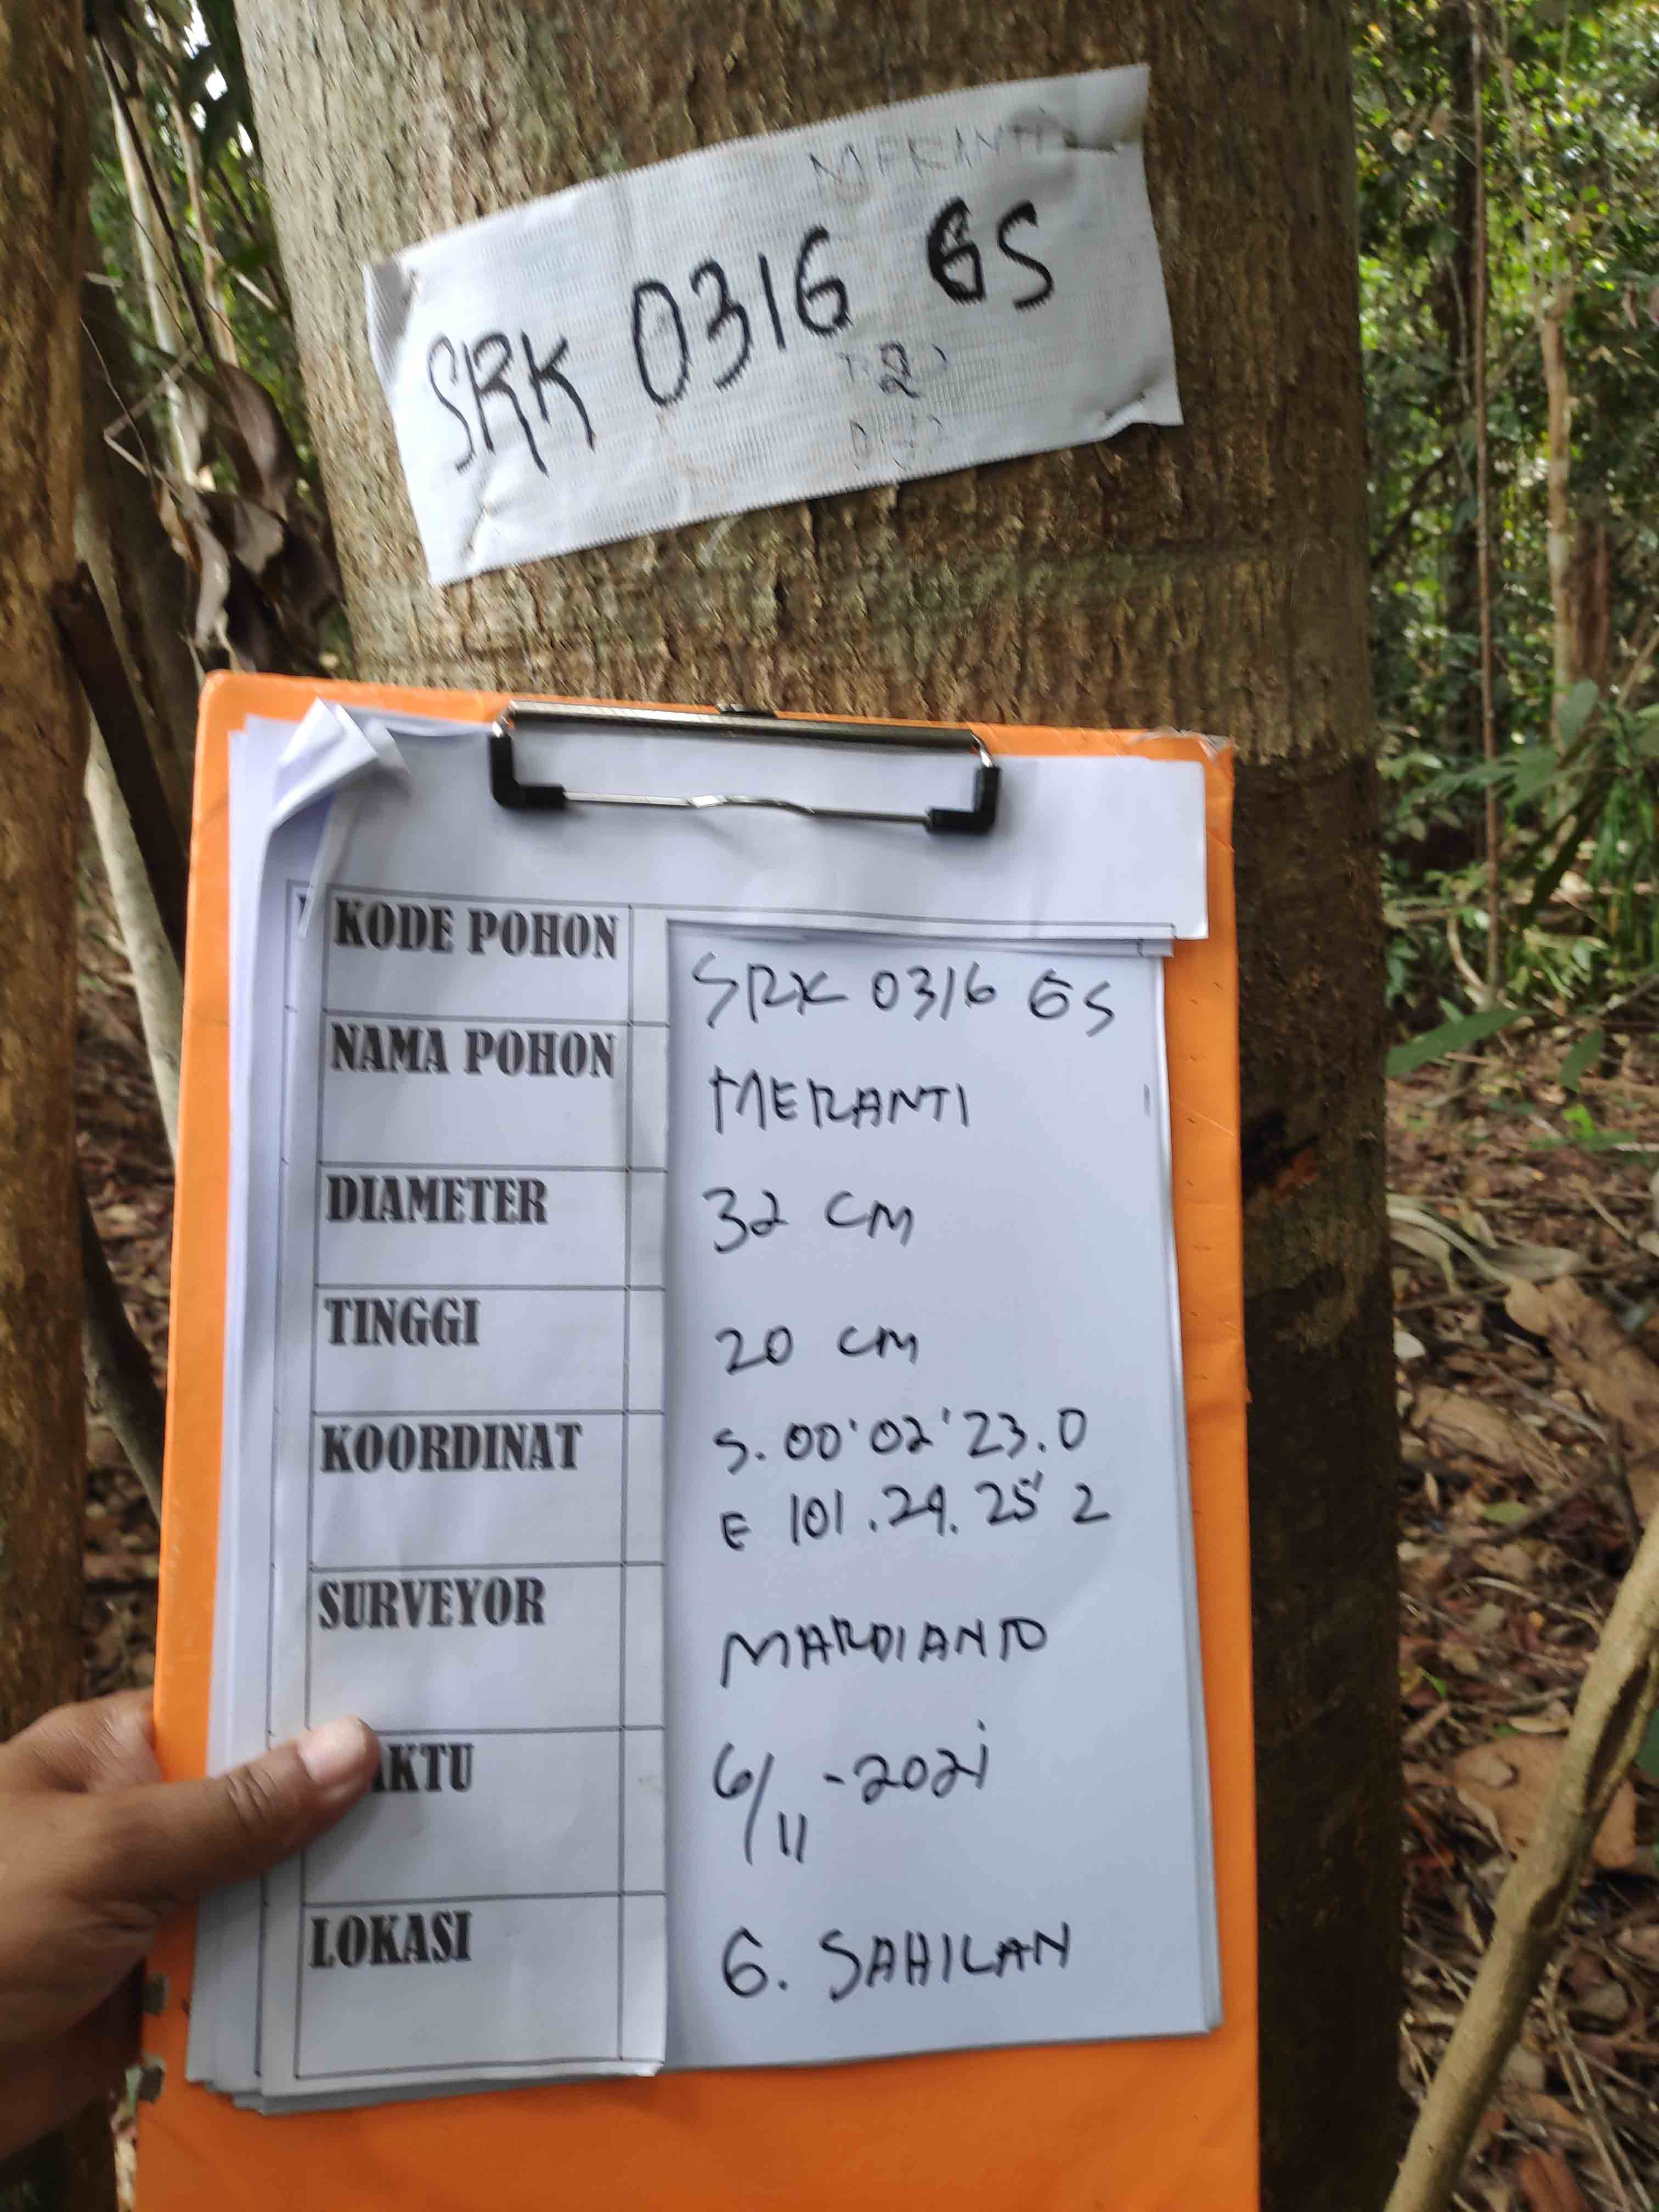 MERANTI
SRK 0316 GS
2
KODE POHON
SRK 0316 GS
NAMA POHON
MERANTI
DIAMETER
32 CM
TINGGI
20 CM
KOORDINAT
S. 00'02'23.0
E 101.24.25' 2
SURVEYOR
MARDIANTO
AKTU
6/11-2021
LOKASI
G. SAHILAN